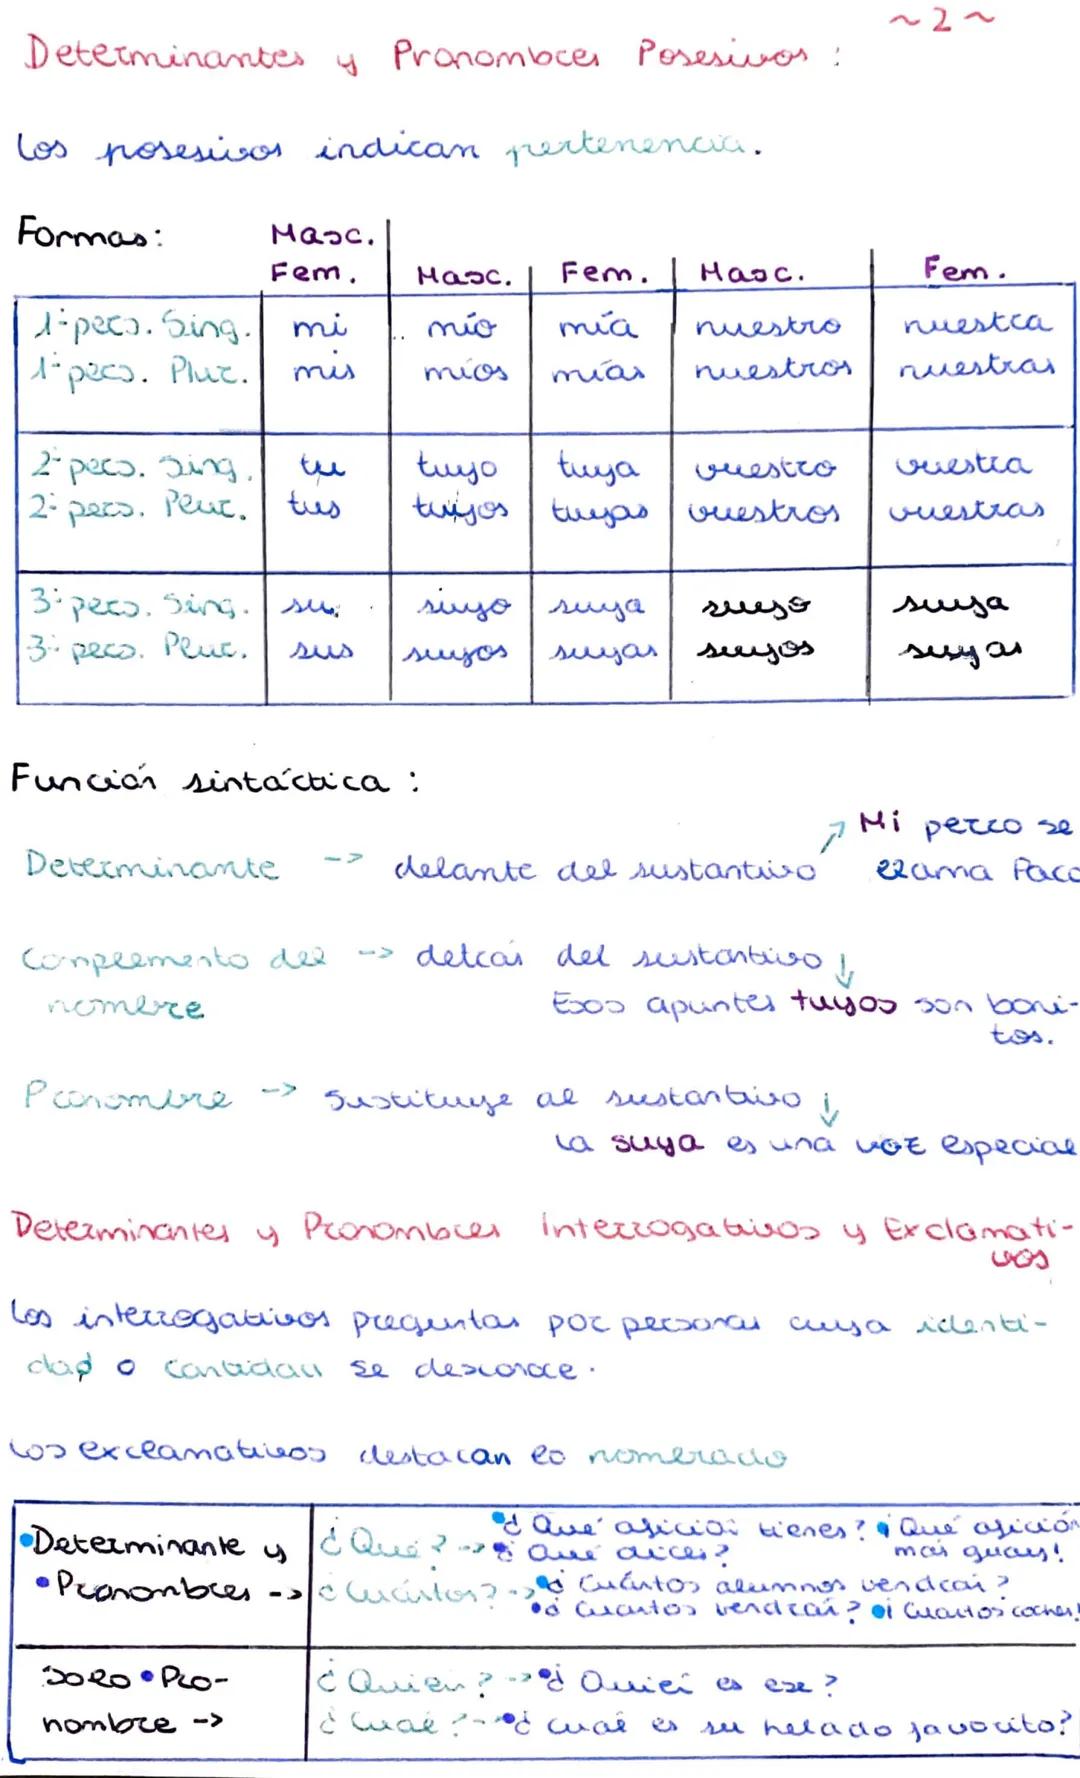 ~2~
Determinantes y Pronombres Posesivos:
Los posesivos indican pertenencia.
Formas:
Masc.
Fem. Masc. Fem. Masc. Fem.
1ª pers. Sing. mi mío mía nuestro nuestra
1ª pers. Plur. mis míos mías nuestros nuestras
2ª pers. Sing. tu tuyo tuya vuestro vuestra
2ª pers. Plur. tus tuyos tuyas vuestros vuestras
3ª pers. Sing. su suyo suya suyo suya
3ª pers. Plur. sus suyos suyas suyos suyas
Función sintáctica:
Mi perro se
Determinante -> delante del sustantivo llama Paco
Complemento del -> detrás del sustantivo
nombre Esos apuntes tuyos son boni-
tos.
Pronombre -> Sustituye al sustantivo
La suya es una voz especial
Determinantes y Pronombres Interrogativos y Exclamati-
vos
Los interrogativos preguntas por personas cuya identi-
dad o cantidad se desconoce.
Los exclamativos destacan lo nomerado
•Determinante y ¿Qué? -> •¿Qué afición tienes? •¡Qué afición
•¿Qué dices? más guay!
•Pronombres -> ¿Cuántos? -> •¿Cuántos alumnos vendrán?
•¿Cuántos vendrán? •¡Cuántos coches!
Solo •Pro- ¿Quién? -> •¿Quién es ese?
nombre -> ¿Cuál? -> •¿Cuál es su helado favorito?